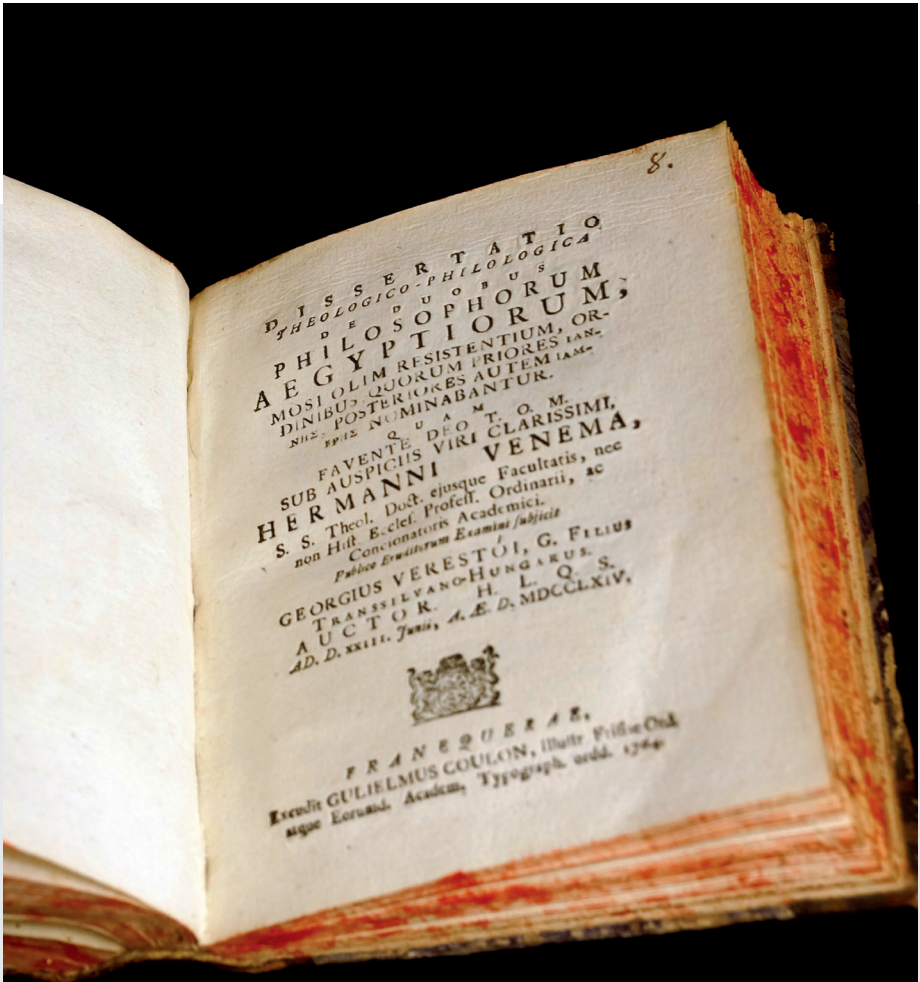 8.
DISSERTATIO
THEOLOGICO-PHILOLOGICA
DE DUOBUS
PHILOSOPHORUM
AEGYPTIORUM,
MOSI OLIM RESISTENTIUM, OR-
DINIBUS, QUORUM PRIORES IAN-
ΝΗΣ, POSTERIORES AUTEM IAM-
ΒΡΗΣ NOMINABANTUR.
QUAM
FAVENTE DEO T. O. M.
SUB AUSPICIIS VIRI CLARISSIMI,
HERMANNI VENEMA,
S. S. Theol. Doct. ejusque Facultatis, nec
non Hist. Eccles. Professs. Ordinarii, ac
Concionatoris Academici.
Publico Eruditorum Examini subjicit
GEORGIUS VERESTÓI, G. FILIUS
TRANSSILVANO-HUNGARUS.
AUCTOR. H. L. Q. S.
AD. D. XXIII. Junii, A. Æ. D. MDCCLXIV,
FRANEQUERAE,
Excudit GULIELMUS COULON, Illustr Frisiae Ord.
atque Eorumd. Academ, Typograph. ordd. 1764.